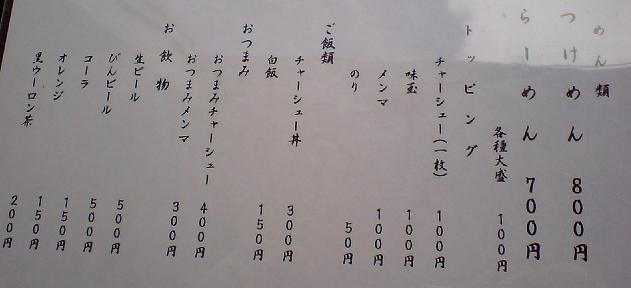 めん類
つけめん 800円
らーめん 700円
各種大盛 100円
トッピング
チャーシュー(一枚) 100円
味玉 100円
メンマ 100円
のり 50円
ご飯類
チャーシュー丼 300円
白飯 150円
おつまみ
おつまみチャーシュー 400円
おつまみメンマ 300円
お飲物
生ビール 500円
びんビール 500円
コーラ 150円
オレンジ 150円
黒ウーロン茶 200円